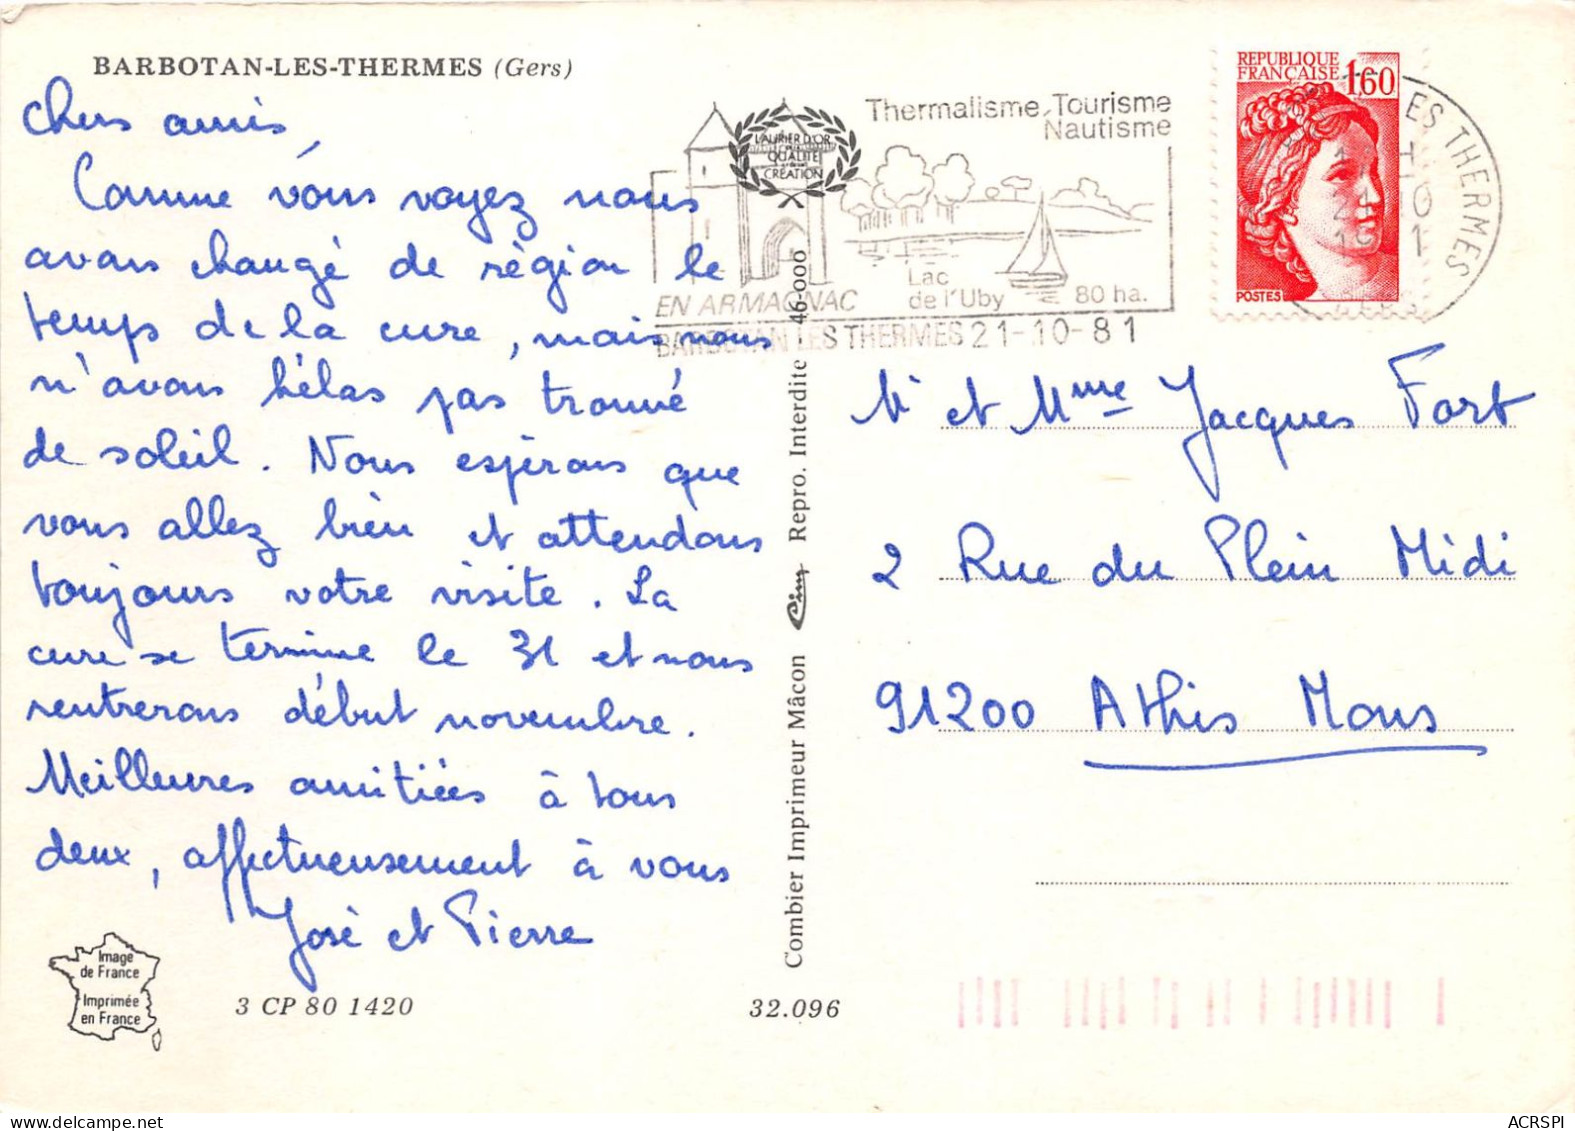 BARBOTAN-LES-THERMES (Gers)
Chers amis,
Comme vous voyez nous
avons changé de région le
temps de la cure, mais nous
n'avons hélas pas trouvé
de soleil. Nous espérons que
vous allez bien et attendons
toujours votre visite. La
cure se termine le 31 et nous
rentrerons début novembre.
Meilleures amitiés à tous
deux, affectueusement à vous
José et Pierre
Image
de France
Imprimée
en France
3 CP 80 1420
32.096
Combier Imprimeur Mâcon Cim Repro. Interdite 46-000
LAURIER D'OR
QUALITÉ
CRÉATION
Thermalisme, Tourisme
Nautisme
EN ARMAGNAC
Lac
de l'Uby
80 ha.
BARBOTAN LES THERMES 21-10-81
REPUBLIQUE
FRANÇAISE 1,60
POSTES
LES THERMES
Mr et Mme Jacques Fort
2 Rue du Plein Midi
91200 Athis Mons
ACRSPI